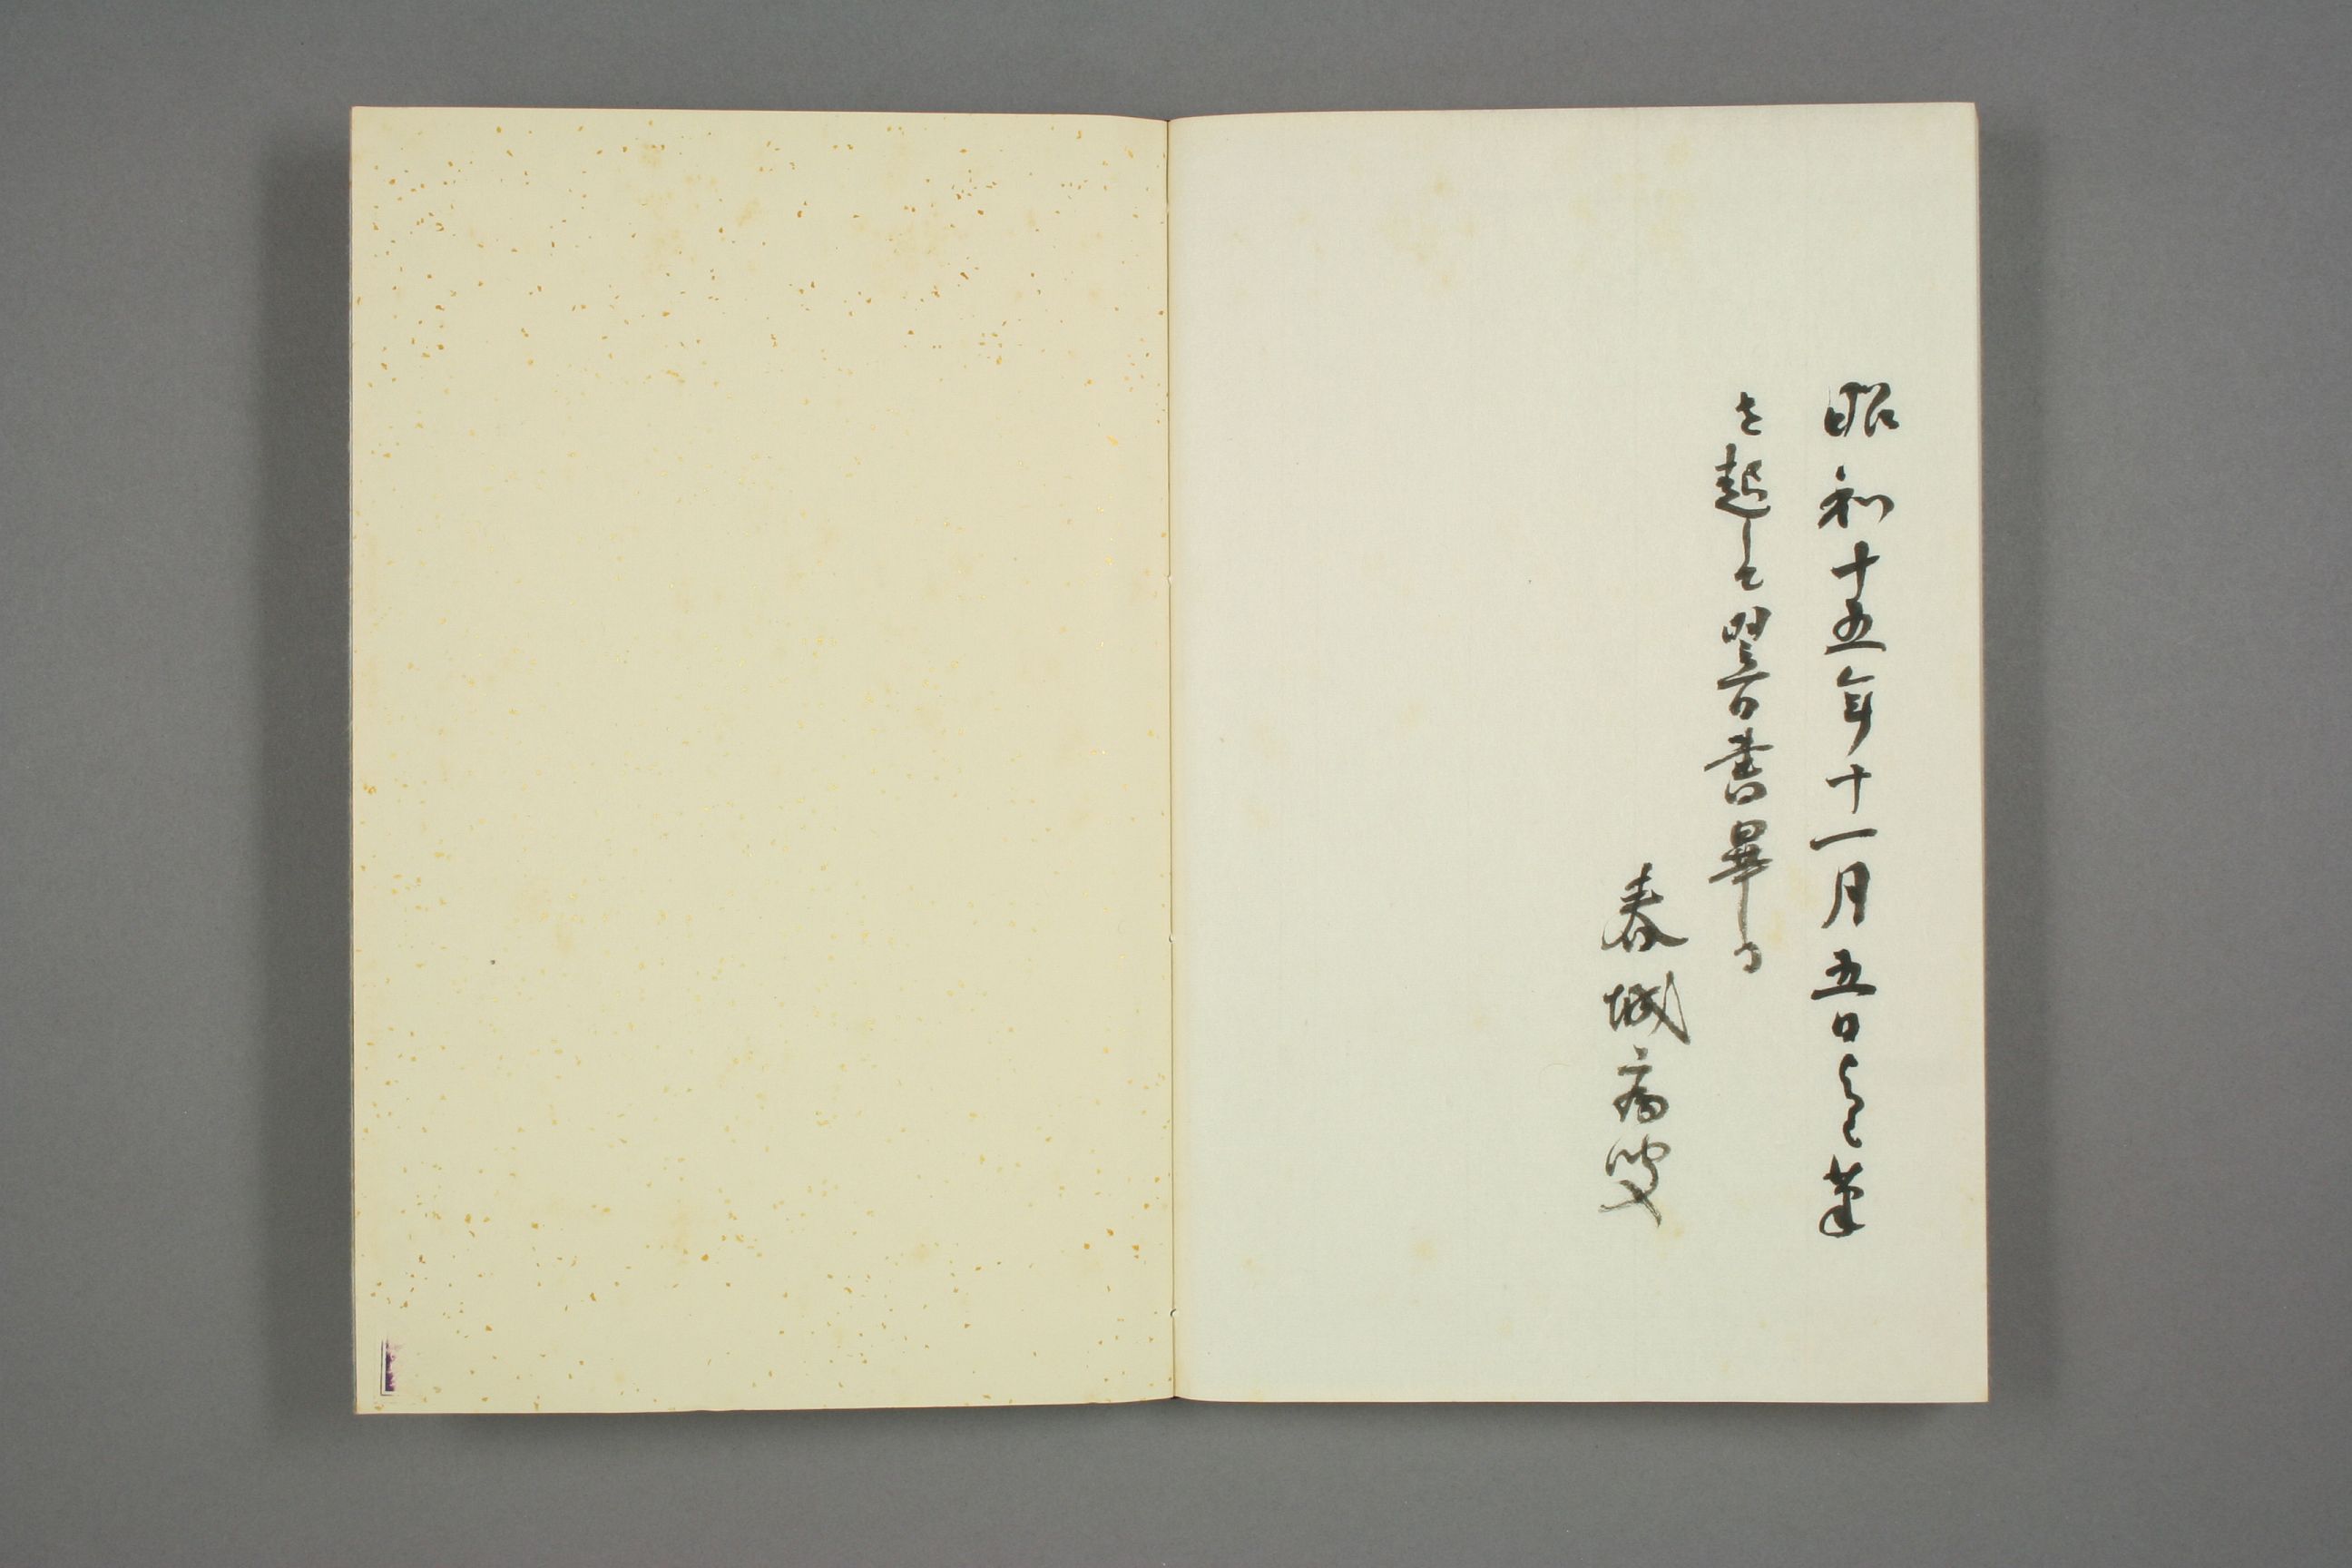 昭和十五年十一月五日筆
を起して翌日書畢る
春城病叟